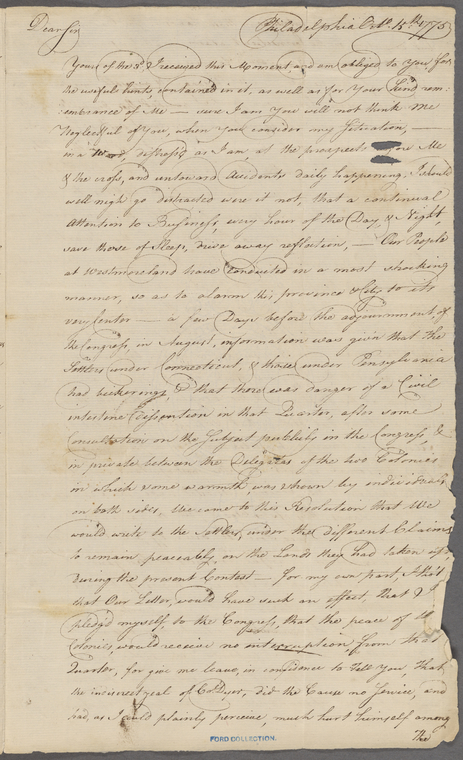 Dear Sir Philadelphia Octr. 15th 1775
Yours of the 3d. I received this Moment, and am obliged to You for
the useful hints, contained in it, as well as for Your kind rem=
embrance of Me — sure I am You will not think Me
Neglectful of You, when You consider my Situation, —
in a Word, distress'd as I am, at the prospect before Me
& the cross, and untoward Accidents daily happening I should
well nigh go distracted were it not, that a continual
Attention to Business, every hour of the Day, & Night,
save those of Sleep, drive away reflection, — Our People
at Westmoreland have conducted in a most shocking
manner, so as to alarm this province & City to its
very Center — a few Days before the adjournment of
the Congress, in August, information was given that the
Settlers under Connecticut, & those under Pensylvania
had bickerings, & that there was danger of a Civil
intestine Dissention in that Quarter, after some
Consultation on the Subject publicly in the Congress, &
in private between the Delegates of the two Colonies
in which some warmth was shown by individuals
on both sides, We came to this Resolution that We
would write to the Settlers, under the different Claims
to remain peaceably, on the Lands they had taken up
during the present Contest — for my own part, I tho't
that Our Letter, would have such an effect, that I
pledg'd myself to the Congress, that the peace of
Colonies, would receive no interruption from that
Quarter, for give me leave, in confidence to Tell You, that
the incorrect zeal of Col Dyer, did the Cause no Service, and
had, as I could plainly perceive, much hurt himself among
The
FORD COLLECTION.